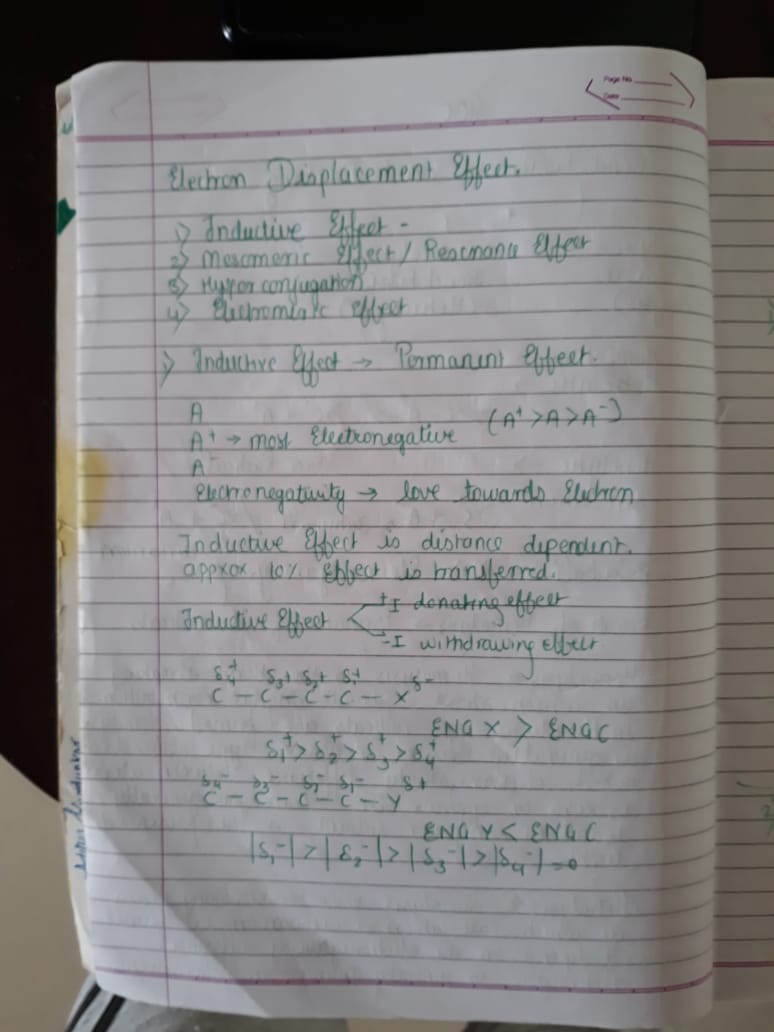 Page No.
Date
Electron Displacement Effect.
1) Inductive Effect -
2) Mesomeric Effect / Resonance Effect
3) Hyper conjugation
4) Electromeric effect
1) Inductive Effect → Permanent Effect.
A
A⁺ → most Electronegative (A⁺ > A > A⁻)
A⁻
Electronegativity → love towards Electron
Inductive Effect is distance dependent.
approx. 10% Effect is transferred.
+I donating effect
Inductive Effect
-I withdrawing effect
δ₄⁺ δ₃⁺ δ₂⁺ δ₁⁺ δ⁻
C - C - C - C - X
ENG X > ENG C
δ₁⁺ > δ₂⁺ > δ₃⁺ > δ₄⁺
δ₄⁻ δ₃⁻ δ₂⁻ δ₁⁻ δ+
C - C - C - C - Y
ENG Y < ENG C
|δ₁⁻| > |δ₂⁻| > |δ₃⁻| > |δ₄⁻| = 0